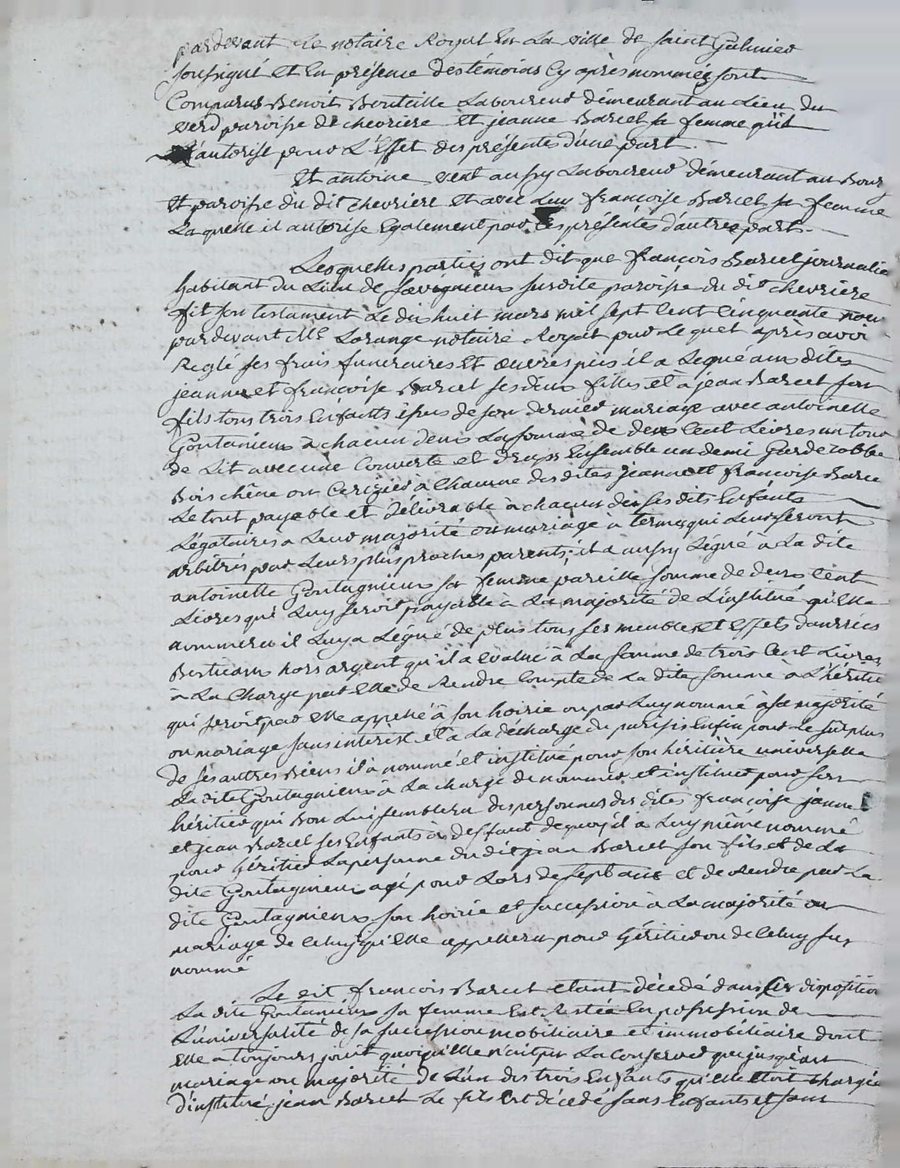 pardevant le notaire Royal En La ville de saint Galmier
soussigné et En présence des temoins Cy après nommés sont
Comparus Benoit Bouteille Laboureur démeurant au Lieu du
verd paroisse de chevriere et jeanne Barcel sa femme qu'il
autorise pour L'Effet des présentes d'une part.
Et antoine vent aussy Laboureur démeurant au Bourg
et paroisse du dit chevriere et avec Luy françoise Barcel sa femme
Laquelle il autorise Egalement pour Ces présentes d'autre part.
Lesquelles parties ont dit que françois Barcel journalier
habitant du Lieu de susdite paroisse du dit chevriere
fit son testament Le dix huit mars mil sept Cent Cinquante nouf
pardevant Me Lorange notaire Royal par Lequel après avoir
Reglé ses frais funeraires et œuvres pies il a Legué aux dites
jeanne et francoise Barcel ses deux filles et à jean Barcel son
fils tous trois Enfants de son dernier mariage avec antoinette
Gontanieux à chacun deux La somme de deux Cent Livres un tour
de Lit avec une Couverte et Draps Ensemble un demi Garderobbe
Bois chêne ou Cerizier à Chacune des dites jeanne et francoise Barcel
Le tout payable et Délivrable à chacun de ses dits Enfants
Légataires a Leur majorité ou mariage à termes qui Leur seront
arbitrés par Leurs plus proches parents, il a aussy Légué à La dite
antoinette Gontagnieux sa femme pareille somme de deux Cent
Livres qui Luy seroit payable à La majorité de L'institué qu'Elle
nommera il Luy a Légué de plus tous ses meubles et Effets danrées
Bestiaux hors argent qu'il a evalué à La somme de trois Cent Livres
à La Charge par Elle de Rendre Compte de La dite somme à L'héritier
qui seroit par Elle appellé à son hoirie ou par Luy nommé à sa majorité
ou mariage sans interest et à La décharge du Enfin pour Le surplus
de ses autres Biens il à nommé et institué pour son heritière universelle
La dite Gontagnieux à La charge de nommer et instituer pour son
héritier qui Bon Lui semblera des personnes des dites françoise jeanne
et jean Barcel ses Enfants à deffaut de quoy il a Luy même nommé
pour héritier La personne du dit jean Barcel son fils et de La
dite Gontagnieux agé pour Lors de sept ans et de Rendre par La
dite Gontagnieux son hoirie et succession à La majorité ou
mariage de Celuy qu'Elle appellera pour héritier ou de Celuy sus
nommé
Le dit françois Barcel etant décédé dans Ces disposition
La dite Gontanieux sa femme Est Restée En possession de
L'universalité de sa succession mobiliaire et immobiliaire dont
Elle a toujours jouit quoiqu'elle n'ait pu La conserver que jusqu'au
mariage ou majorité de L'un des trois Enfants qu'Elle étoit chargée
d'instituer jean Barcel Le fils Est décédé sans Enfants et sans